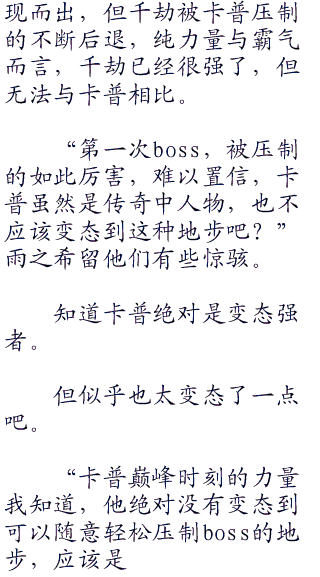 现而出，但千劫被卡普压制
的不断后退，纯力量与霸气
而言，千劫已经很强了，但
无法与卡普相比。
“第一次boss，被压制
的如此厉害，难以置信，卡
普虽然是传奇中人物，也不
应该变态到这种地步吧？”
雨之希留他们有些惊骇。
知道卡普绝对是变态强
者。
但似乎也太变态了一点
吧。
“卡普巅峰时刻的力量
我知道，他绝对没有变态到
可以随意轻松压制boss的地
步，应该是